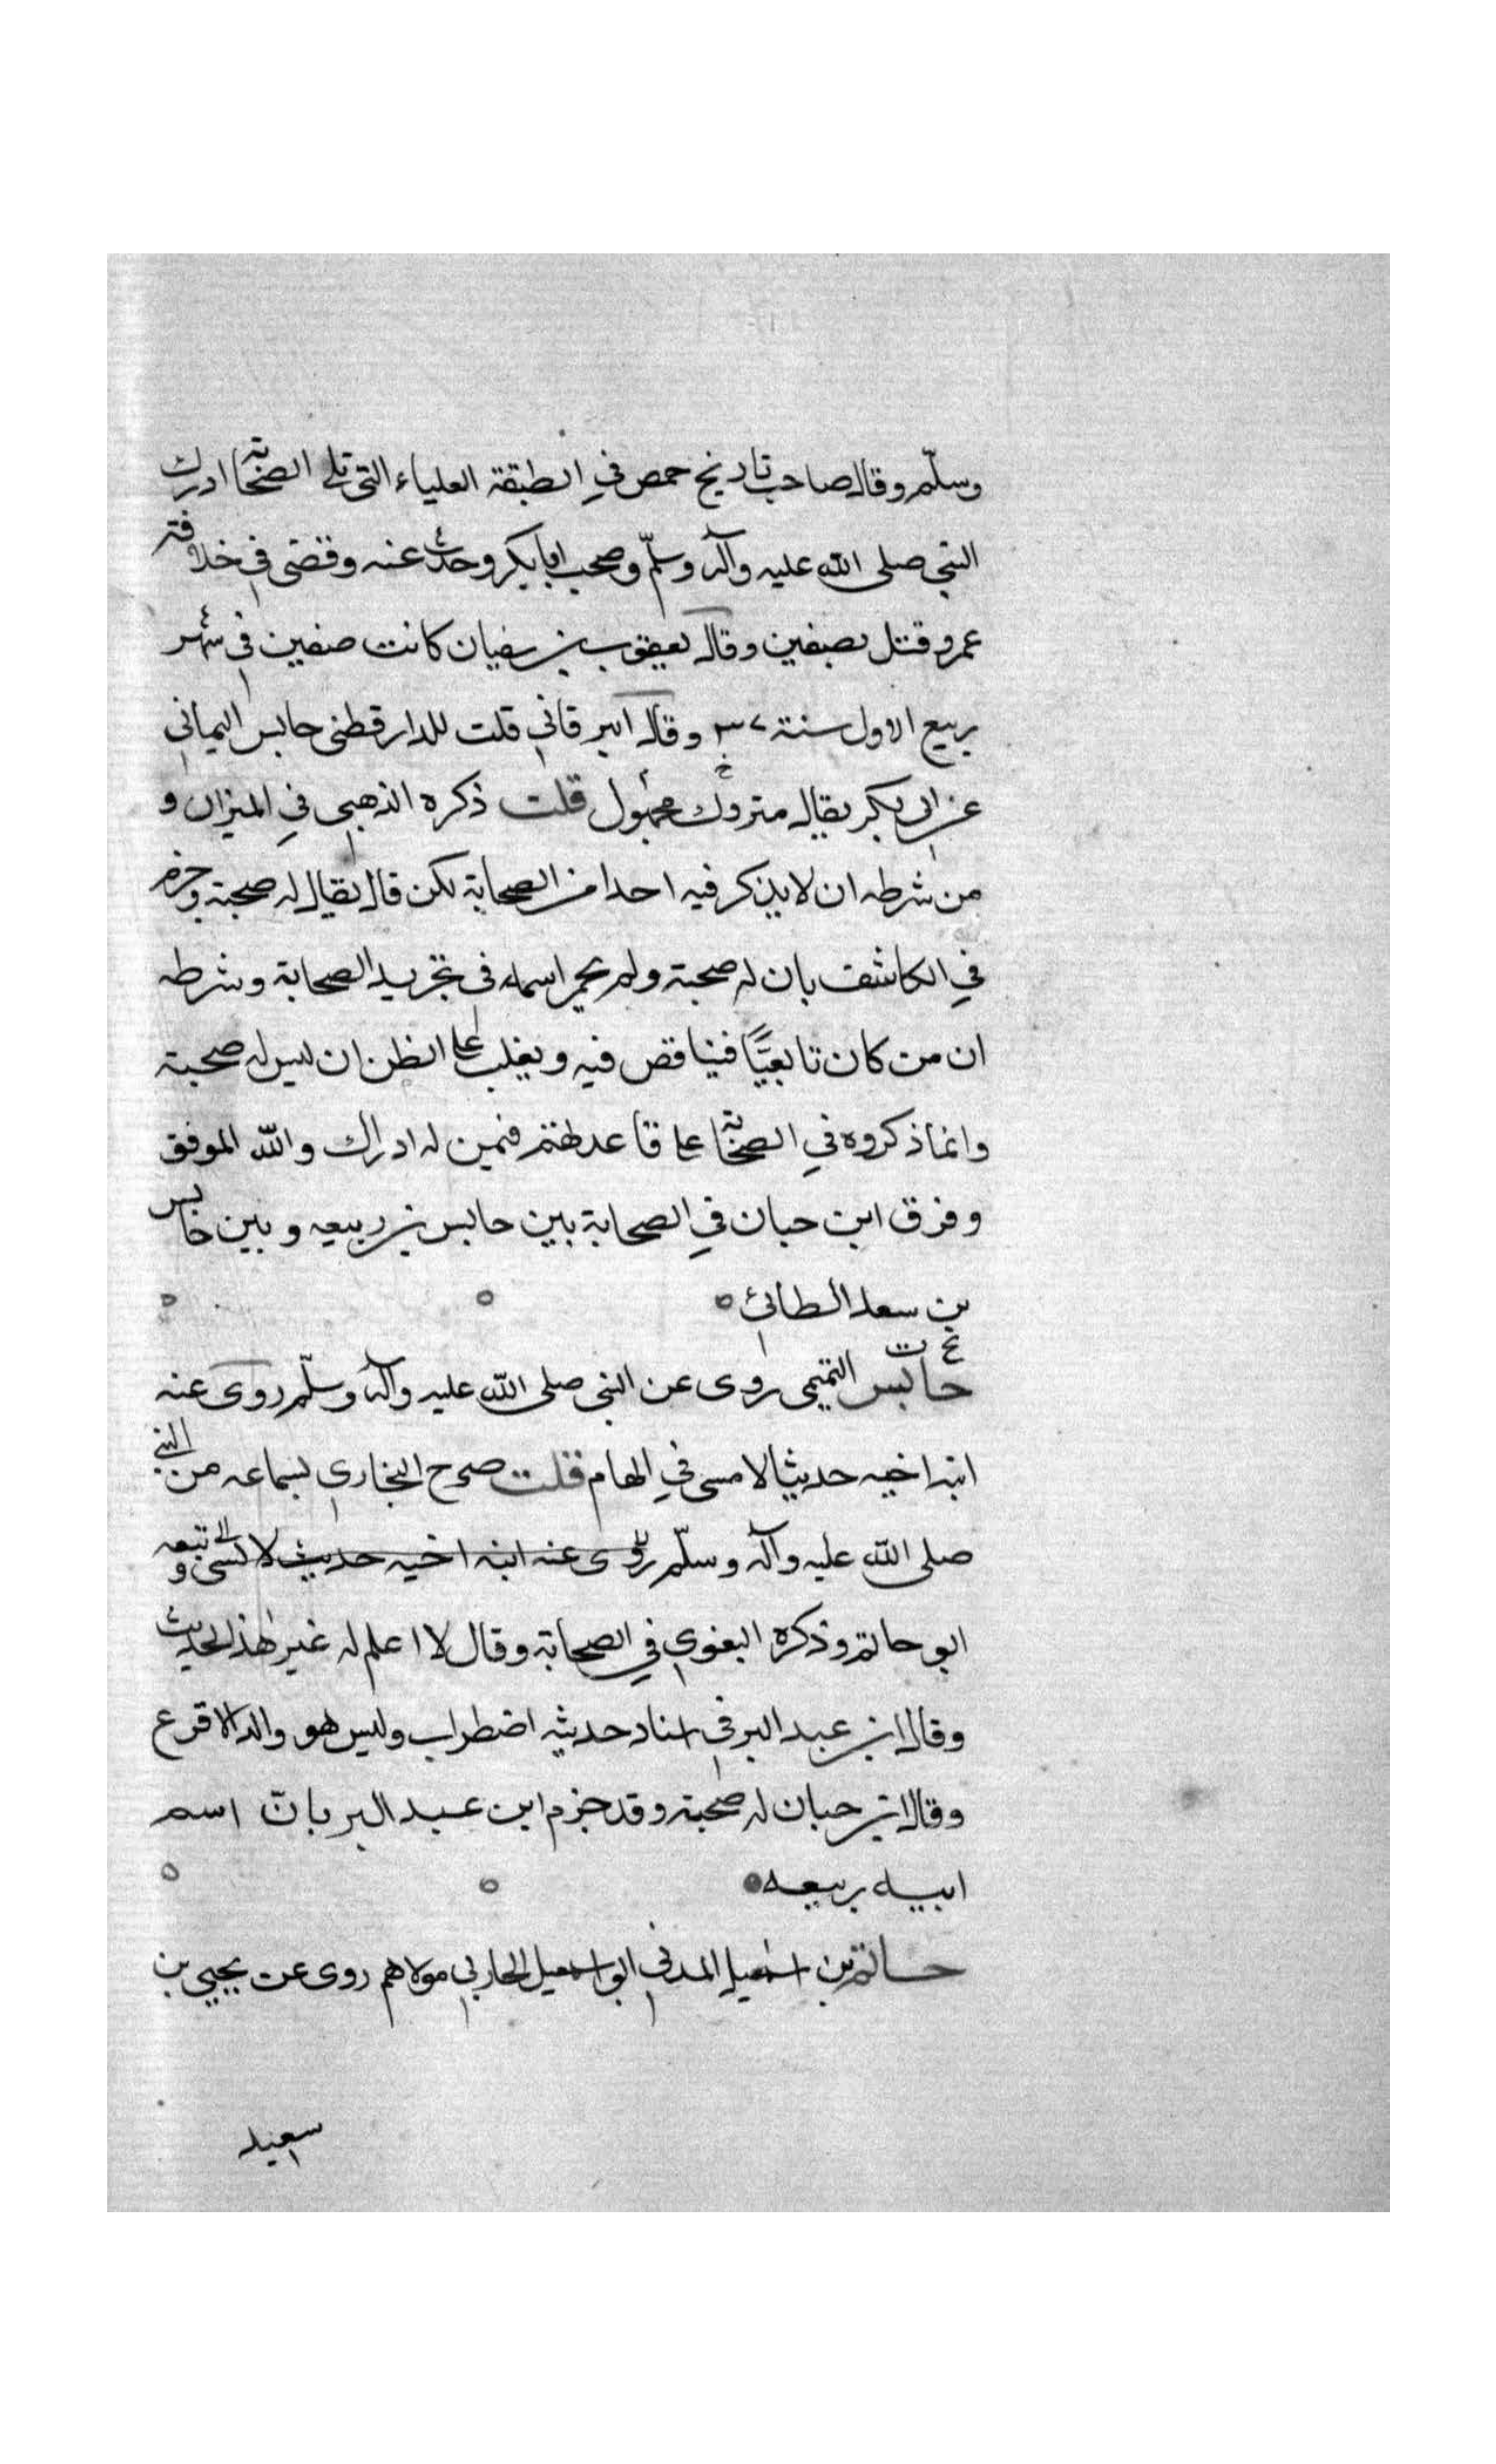 وسلّم وقال صاحب تاريخ حمص في الطبقة العلياء التي تلي الصحابة ادرك
النبي صلى الله عليه وآله وسلّم وصحب ابابكر وحدث عنه وقضى في خلافة
عمر وقتل بصفين وقال يعقوب بن سفيان كانت صفين في شهر
ربيع الاول سنة ٣٧ وقال البرقاني قلت للدارقطني حابس اليماني
عن ابي بكر يقال متروك مجهول قلت ذكره الذهبي في الميزان و
من شرطه ان لا يذكر فيه احدا من الصحابة لكن قال يقال له صحبة وجزم
في الكاشف بان له صحبة ولم يحمر اسمه في تجريد الصحابة وشرطه
ان من كان تابعيًّا فيناقض فيه ويغلب على الظن ان ليس له صحبة
وانما ذكروه في الصحابة على قاعدتهم فمين له ادراك والله الموفق
وفرق ابن حبان في الصحابة بين حابس بن ربيعه وبين حابس
بن سعد الطائي
حابس التميمي روى عن النبي صلى الله عليه وآله وسلّم روى عنه
ابنه اخيه حديثا لا مسى في الهام قلت صرح البخاري بسماعه من النبي
صلى الله عليه وآله وسلّم روى عنه ابنه اخيه حديث لا شئ وتبعه
ابو حاتم وذكره البغوي في الصحابة وقال لا اعلم له غير هذا الحديث
وقال ابن عبد البر في اسناد حديثه اضطراب وليس هو والد الاقرع
وقال ابن حبان له صحبة وقد جزم ابن عبد البر بانّ اسم
ابيه ربيعه
حاتم بن اسمعيل المدني ابو اسمعيل الحاربي مولاهم روى عن يحيى بن
سعيد